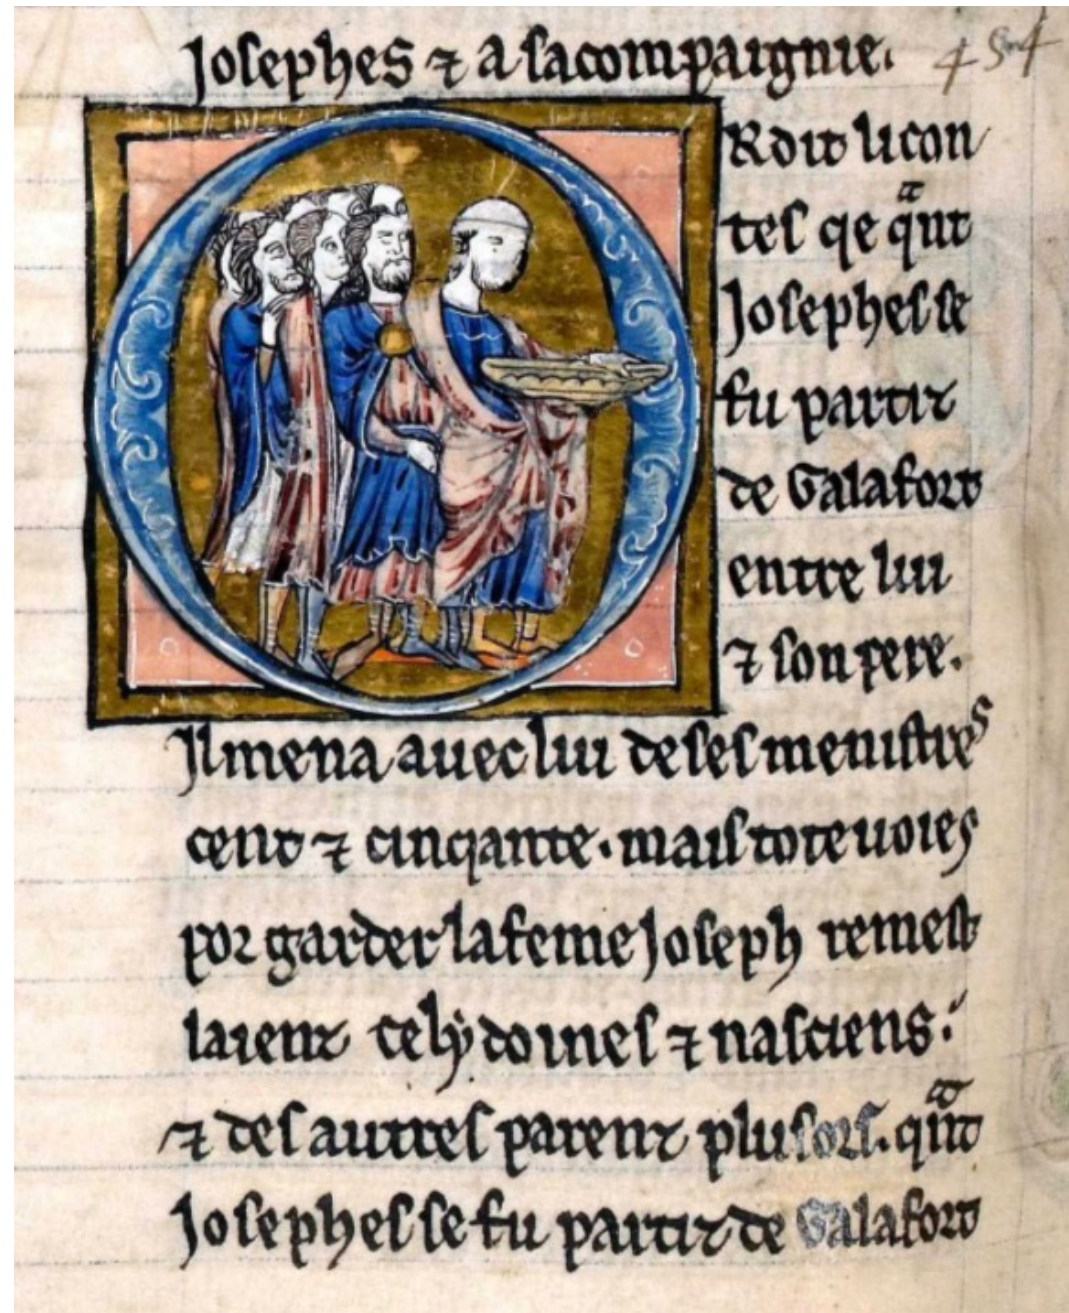 Josephes ⁊ a sa compaignie. 454
Or dit li con
tes qe qᵃnt
Josephes se
fu partiz
de Galafort
entre lui
⁊ son pere.
Il mena auec lui de ses menistres
cent ⁊ cinqante. mais tote uoies
por garder la feme Joseph remest
laienz celydoines ⁊ nasciens.
⁊ des autres parenz plusors. qᵃnt
Josephes se fu partiz de Galafort